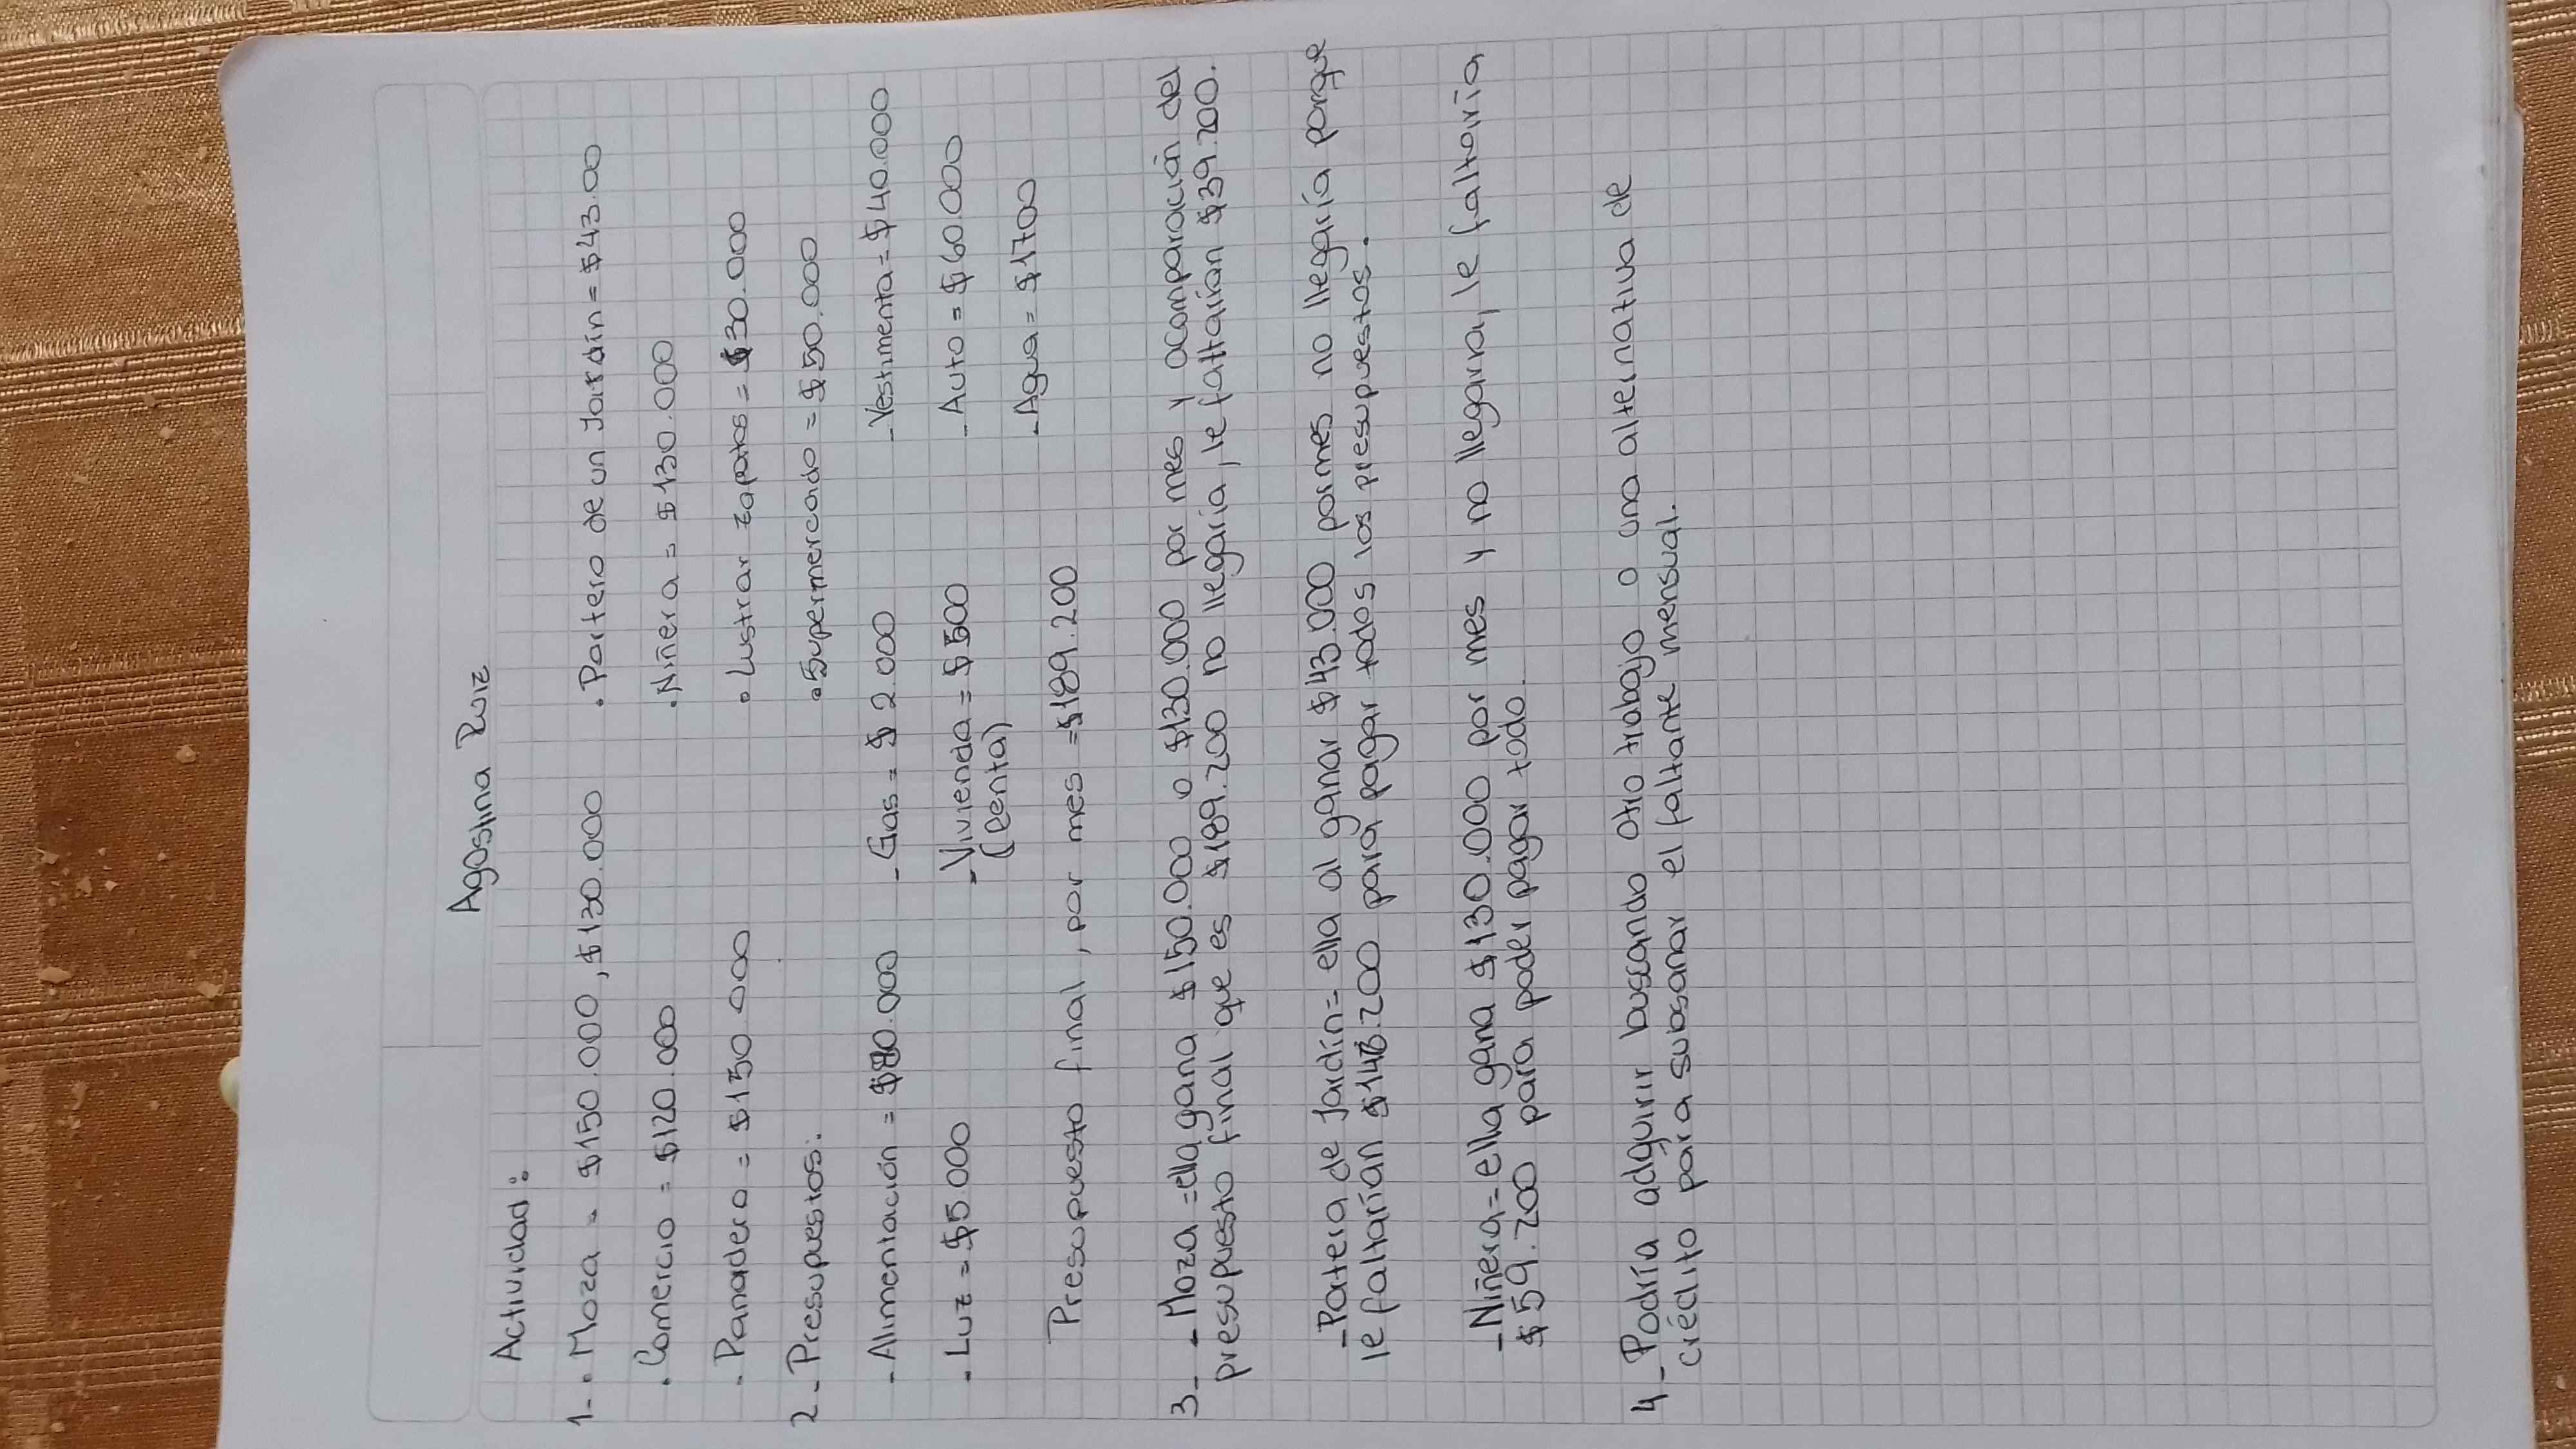 Agostina Ruiz
Actividad:
1-. Moza = $150.000, $130.000 . Portero de un Jardín = $43.00
. Comercio = $120.000 . Niñera = $130.000
. Panadero = $150 000 . Lustrar zapatos = $30.000
2- Presupuestos: . Supermercado = $50.000
- Alimentación = $80.000 - Gas = $ 2.000 - Vestimenta = $40.000
- Luz = $5.000 - Vivienda = $500 - Auto = $60.000
(Renta) - Agua = $1700
Presupuesto final, por mes = $189.200
3- - Moza = ella gana $150.000 o $130.000 por mes y acomparación del
presupuesto final que es $189.200 no llegaría, le faltarían $39.200.
- Portera de Jardín = ella al ganar $43.000 por mes no llegaría porque
le faltarían $146.200 para pagar todos los presupuestos.
- Niñera = ella gana $130.000 por mes y no llegaria, le faltaría
$59.200 para poder pagar todo.
4- Podría adquirir buscando otro trabajo o una alternativa de
crédito para subsanar el faltante mensual.